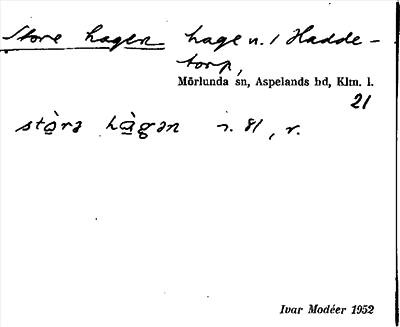 Store hagen hage n. i Hadde-
torp,
Mörlunda sn, Aspelands hd, Klm. l.
21
stò̱rə hà̱gən i. 81, r.
Ivar Modéer 1952